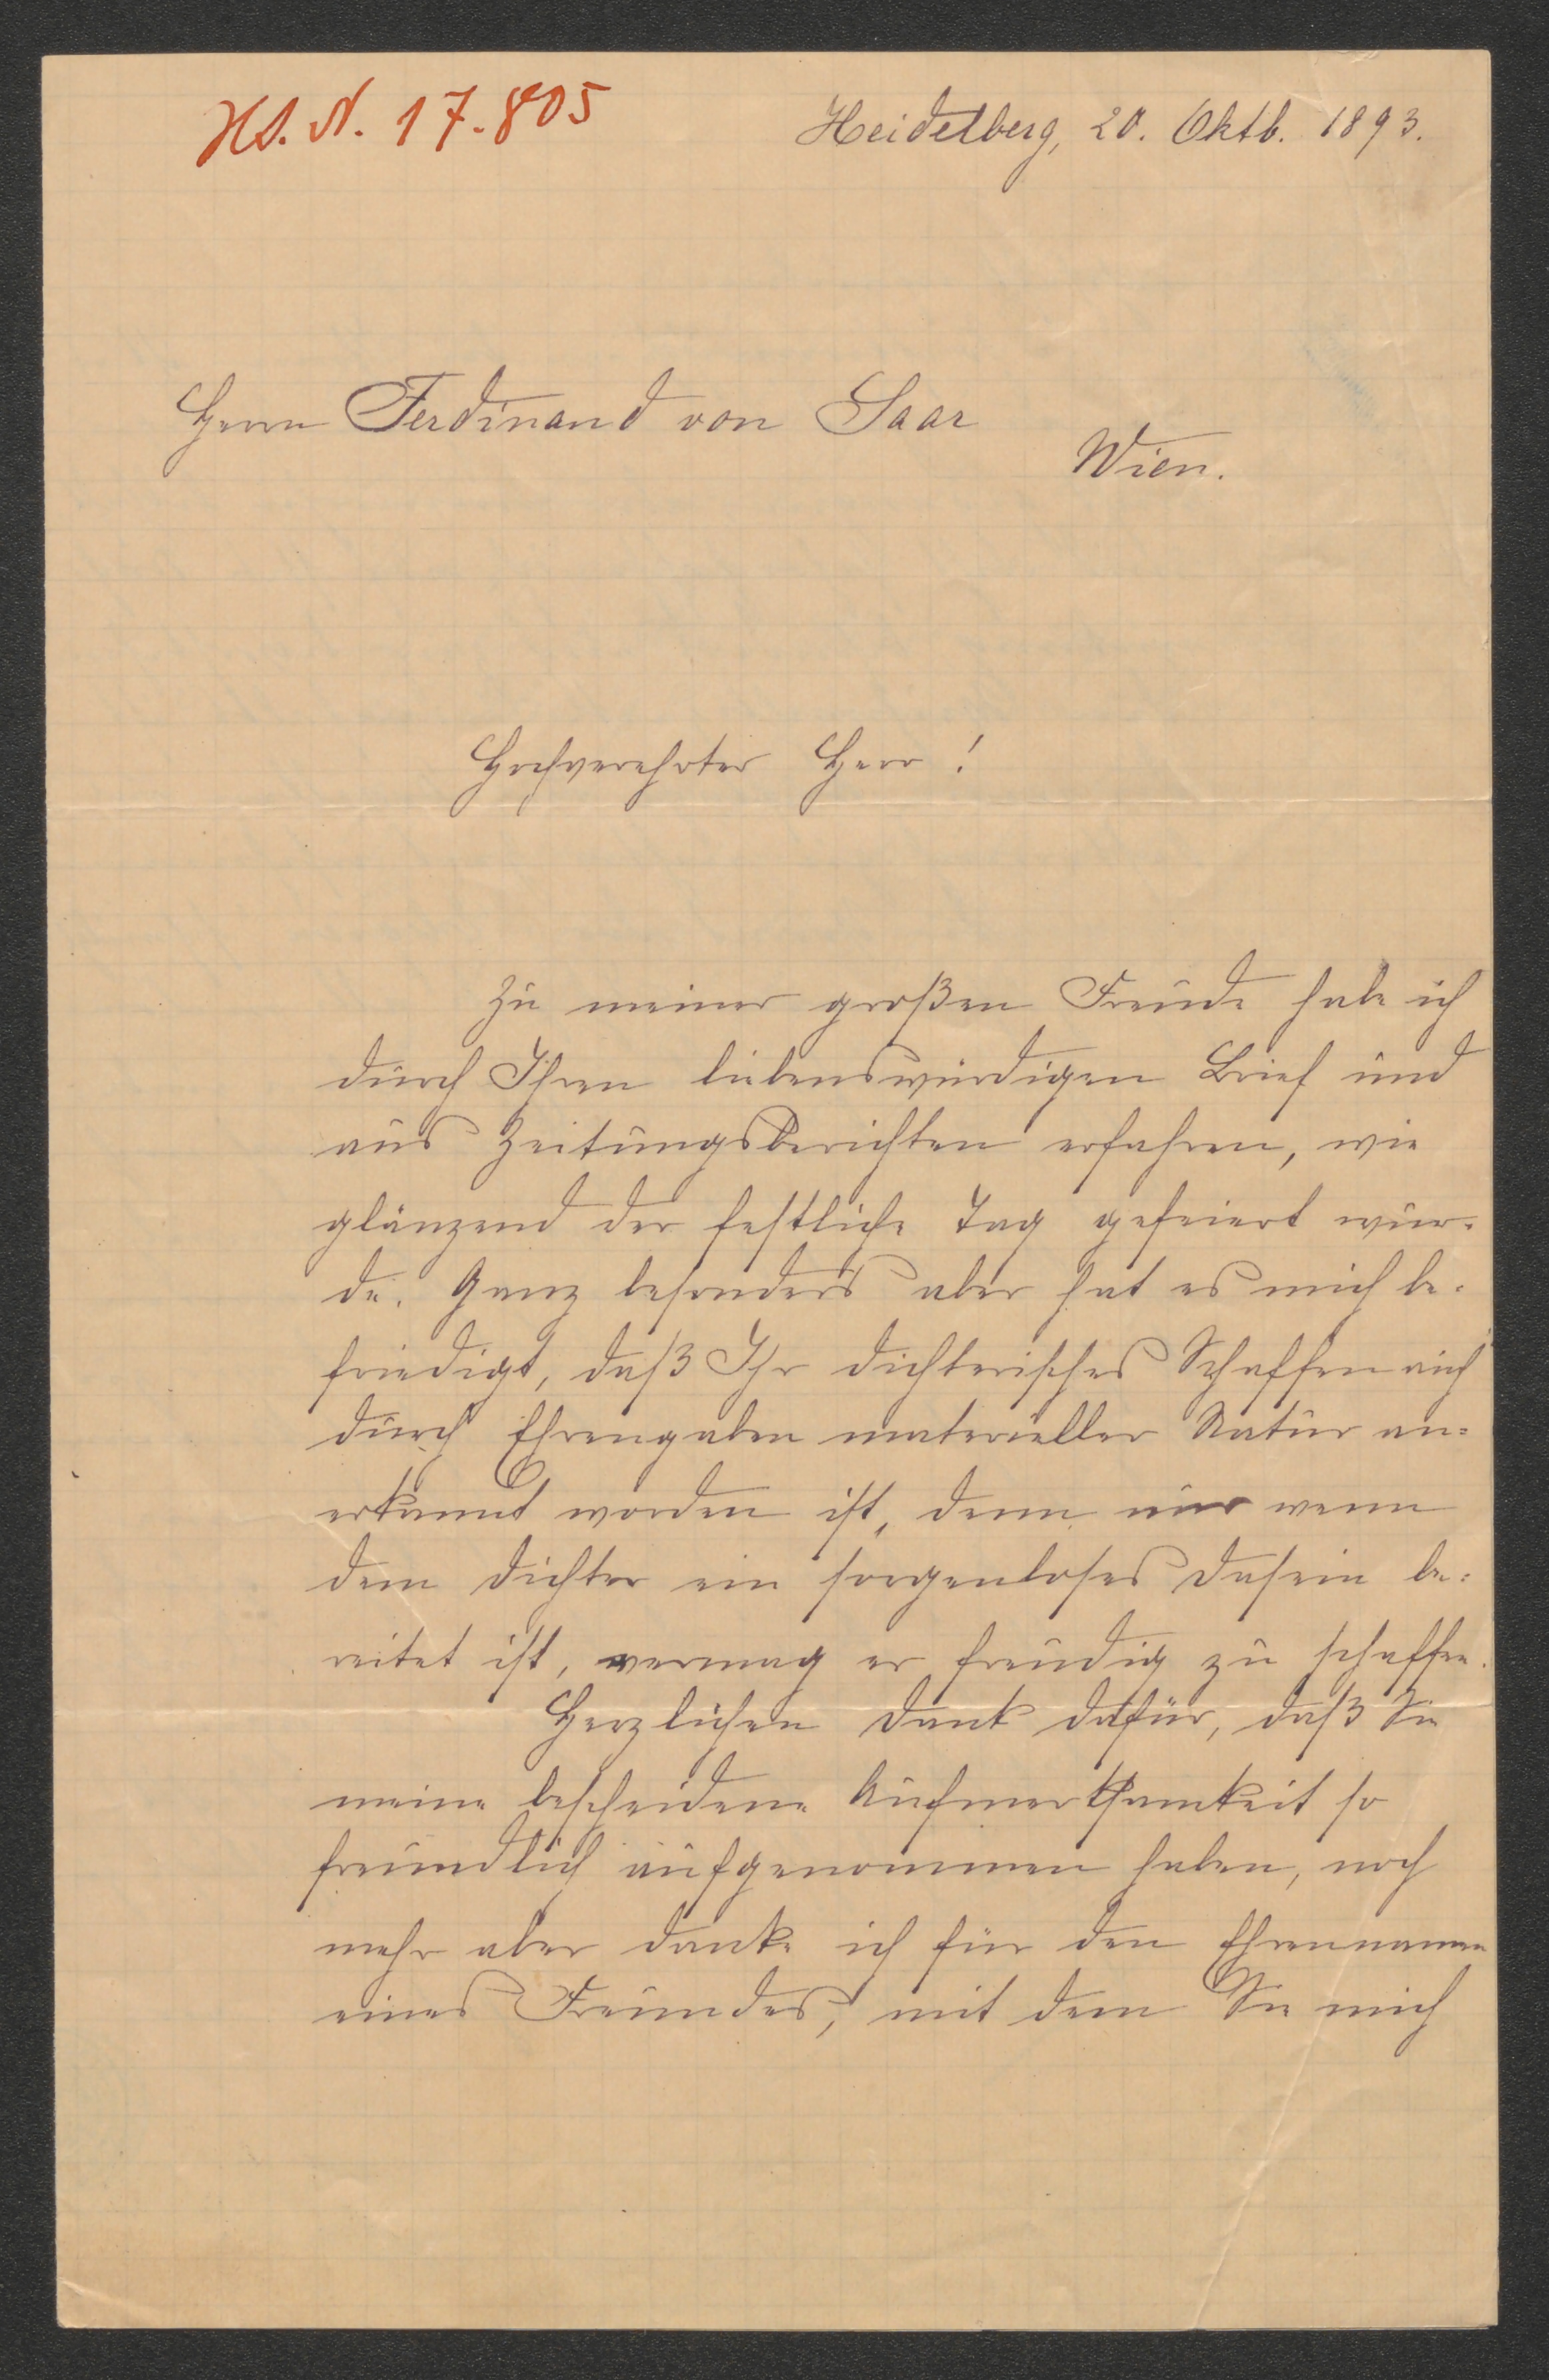 HS. N. 17.805
Heidelberg, 20. Oktb. 1893.
Herrn Ferdinand von Saar
Wien.
Hochverehrter Herr!
Zu meiner großen Freude habe ich
durch Ihren liebenswürdigen Brief und
aus Zeitungsberichten erfahren, wie
glänzend der festliche Tag gefeiert wur-
de. Ganz besonders aber hat es mich be-
friedigt, daß Ihr dichterisches Schaffen auch
durch Ehrengaben materieller Natur an-
erkannt worden ist, denn nur wenn
dem Dichter ein sorgenloses Dasein be-
reitet ist, vermag er freudig zu schaffen.
Herzlichen Dank dafür, daß Sie
meine bescheidene Aufmerksamkeit so
freundlich aufgenommen haben, noch
mehr aber danke ich für den Ehrennamen
eines Freundes, mit dem Sie mich